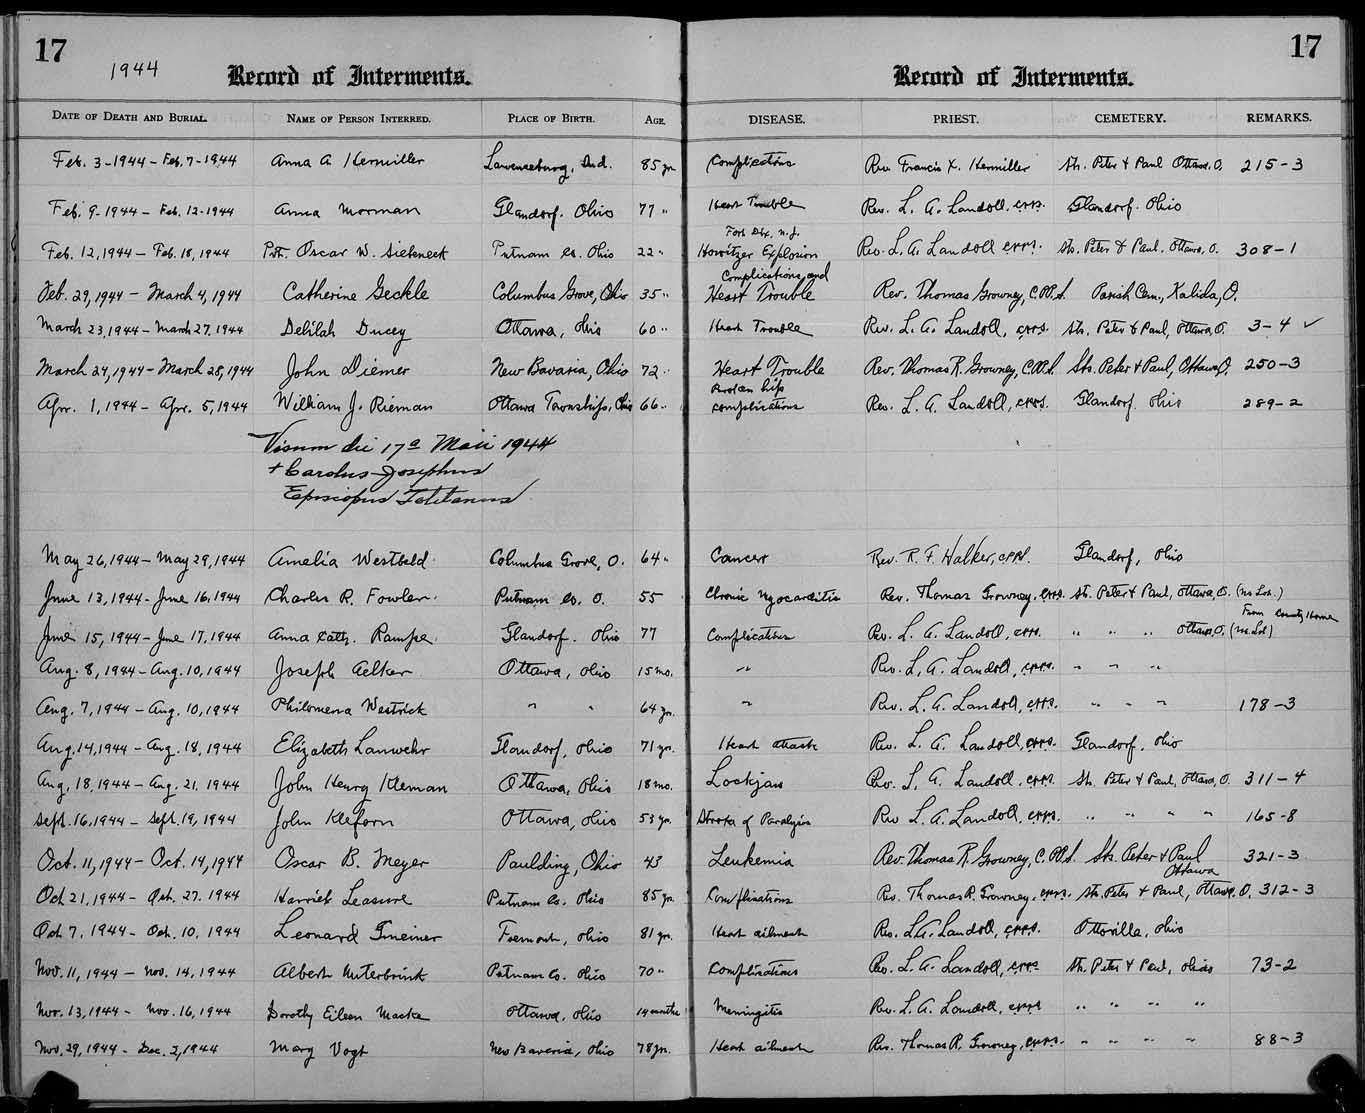 17
17
1944
Record of Interments.
Record of Interments.
DATE OF DEATH AND BURIAL. NAME OF PERSON INTERRED. PLACE OF BIRTH. AGE. DISEASE. PRIEST. CEMETERY. REMARKS.
Feb. 3-1944 - Feb. 7-1944 Anna A Hermiller Lawrenceburg, Ind. 85 yr Complications Rev. Francis X. Hermiller Sts. Peter & Paul Ottawa, O. 215-3
Feb. 9-1944 - Feb. 12-1944 Anna Morman Glandorf. Ohio 77 " Heart Trouble Rev. L. A. Landoll, c.pp.s. Glandorf. Ohio
Fort Dix, N.J.
Feb. 12, 1944 - Feb. 18, 1944 Pvt. Oscar W. Siebeneck Putnam Co. Ohio 22 " Howitzer Explosion Rev. L. A. Landoll c.pp.s. Sts. Peter & Paul. Ottawa, O. 308-1
Complications, and
Feb. 29, 1944 - March 4, 1944 Catherine Geckle Columbus Grove, Ohio 35 " Heart Trouble Rev. Thomas Growney, C.PP.S. Parish Cem., Kalida, O.
March 23, 1944 - March 27, 1944 Delilah Ducey Ottawa, Ohio 60 " Heart Trouble Rev. L. A. Landoll, c.pp.s. Sts. Peter & Paul, Ottawa, O. 3-4 ✓
March 24, 1944 - March 28, 1944 John Diemer New Bavaria, Ohio 72 " Heart Trouble Rev. Thomas R. Growney, C.PP.S. Sts. Peter & Paul, Ottawa, O. 250-3
Broken hip
Apr. 1, 1944 - Apr. 5, 1944 William J. Rieman Ottawa Township, Ohio 66 " complications Rev. L. A. Landoll, c.pp.s. Glandorf. Ohio 289-2
Visum die 17a Maii 1944
+ Carolus Josephus
Episcopus Toletanus
May 26, 1944 - May 29, 1944 Amelia Westbeld Columbus Grove, O. 64 " Cancer Rev. R. F. Halker, c.pp.s. Glandorf, Ohio
June 13, 1944 - June 16, 1944 Charles R. Fowler Putnam Co. O. 55 Chronic Myocarditis Rev. Thomas Growney, c.pp.s. St. Peter & Paul, Ottawa, O. (no Lot.)
From County Home
June 15, 1944 - June 17, 1944 Anna Cath. Rampe Glandorf. Ohio 77 Complications Rev. L. A. Landoll, c.pp.s. " " " Ottawa, O. (no Lot)
Aug. 8, 1944 - Aug. 10, 1944 Joseph Aelker Ottawa, Ohio 15 mo. " Rev. L. A. Landoll, c.pp.s. " " "
Aug. 7, 1944 - Aug. 10, 1944 Philomena Westrick " " 64 yr. " Rev. L. A. Landoll, c.pp.s. " " " 178-3
Aug. 14, 1944 - Aug. 18, 1944 Elizabeth Lanwehr Glandorf, Ohio 71 yr. Heart attack Rev. L. A. Landoll, c.pp.s. Glandorf, Ohio
Aug. 18, 1944 - Aug. 21, 1944 John Henry Kleman Ottawa, Ohio 18 mo. Lockjaw Rev. L. A. Landoll, c.pp.s. Sts. Peter & Paul, Ottawa, O. 311-4
Sept. 16, 1944 - Sept. 19, 1944 John Kleforn Ottawa, Ohio 53 yr. Stroke of Paralysis Rev L. A. Landoll, c.pp.s. " " " " 165-8
Oct. 11, 1944 - Oct. 14, 1944 Oscar B. Meyer Paulding, Ohio 43 Leukemia Rev. Thomas R. Growney, C.PP.S. Sts. Peter & Paul 321-3
Ottawa
Oct 21, 1944 - Oct. 27, 1944 Harriet Leasure Putnam Co. Ohio 85 yr. Complications Rev. Thomas R. Growney, c.pp.s. Sts. Peter & Paul, Ottawa, O. 312-3
Oct 7, 1944 - Oct. 10, 1944 Leonard Greiner Fremont, Ohio 81 yr. Heart ailment Rev. L. A. Landoll, c.pp.s. Ottoville, Ohio
Nov. 11, 1944 - Nov. 14, 1944 Albert Unterbrink Putnam Co. Ohio 70 " Complications Rev. L. A. Landoll, c.pp.s Sts. Peter & Paul, Ohio 73-2
Nov. 13, 1944 - Nov. 16, 1944 Dorothy Eileen Macke Ottawa, Ohio 14 months Meningitis Rev. L. A. Landoll, c.pp.s " " " "
Nov. 29, 1944 - Dec. 2, 1944 Mary Vogt New Bavaria, Ohio 78 yr. Heart ailment Rev. Thomas R. Growney, c.pp.s. " " " " 88-3